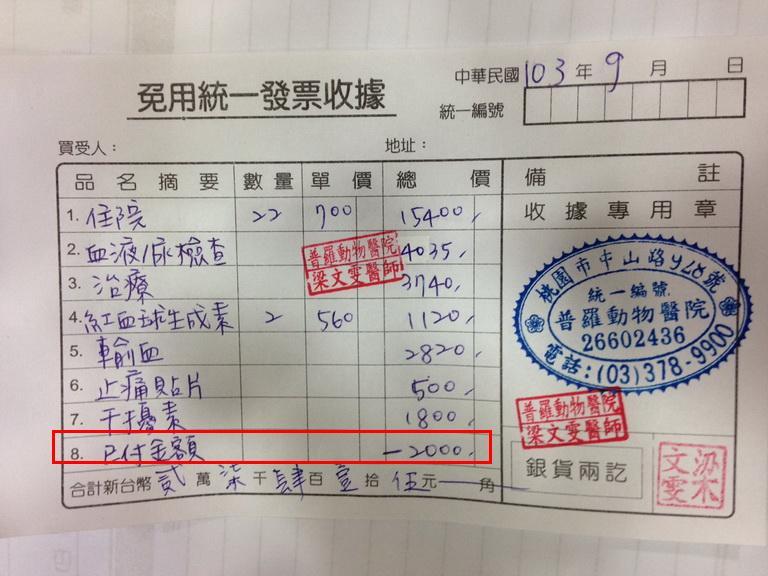 免用統一發票收據
中華民國103年9月 日
統一編號
買受人： 地址：
品名摘要 數量 單價 總價 備註
1. 住院 22 700 15400,
2. 血液/尿檢查 4035,
3. 治療 3740,
4. 紅血球生成素 2 560 1120,
5. 輸血 2820,
6. 止痛貼片 500,
7. 干擾素 1800,
8. 已付金額 -2000,
合計新台幣 貳萬柒千肆百壹拾伍元 角
普羅動物醫院
梁文雯醫師
收據專用章
桃園市中山路928號
統一編號
普羅動物醫院
26602436
電話:(03)378-9900
普羅動物醫院
梁文雯醫師
銀貨兩訖